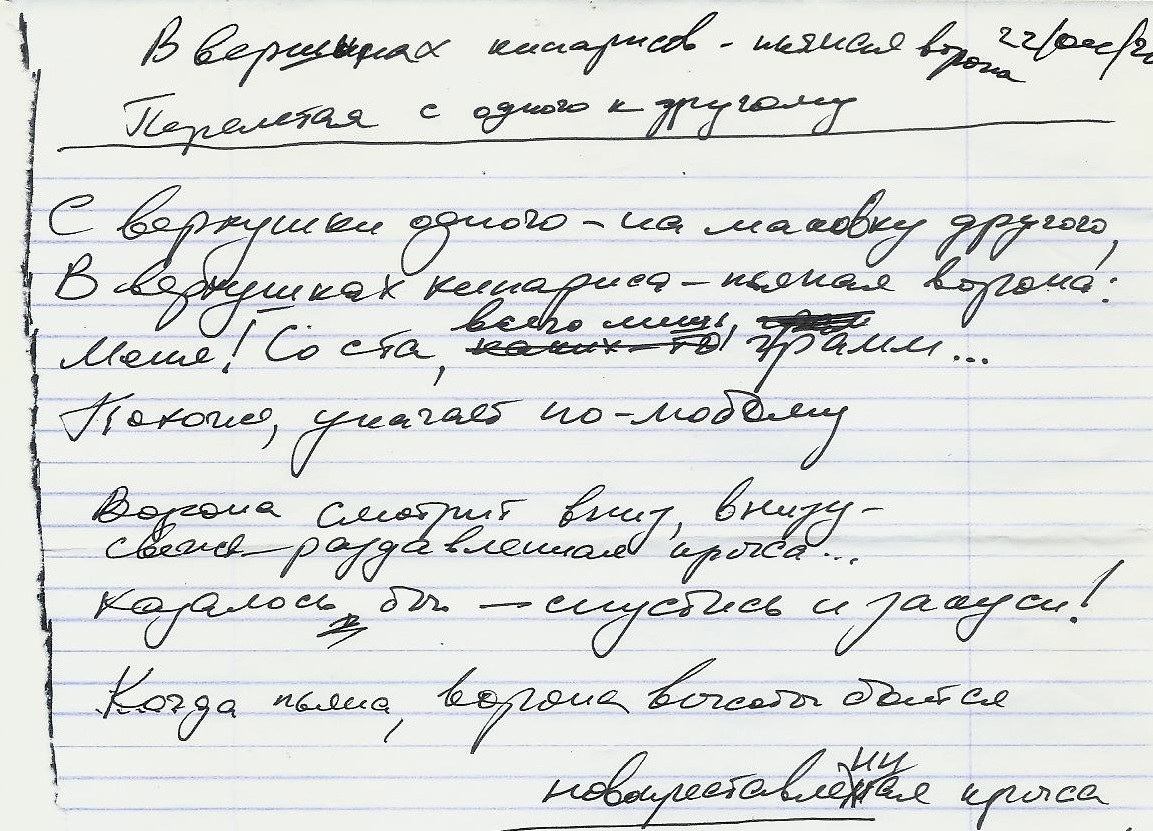 В вершинах кипарисов - пьяная ворона 22/
Перелетая с одного к другому
С верхушки одного - на маковку другого,
В верхушках кипариса - пьяная ворона:
Меня! Со ста, всего лишь, грамм...
Похоже, укачает по-любому
Ворона смотрит вниз, внизу -
свеже-раздавленная крыса...
Казалось бы - спустись и закуси!
Когда пьяна, ворона высоты боится
новопреставленная крыса